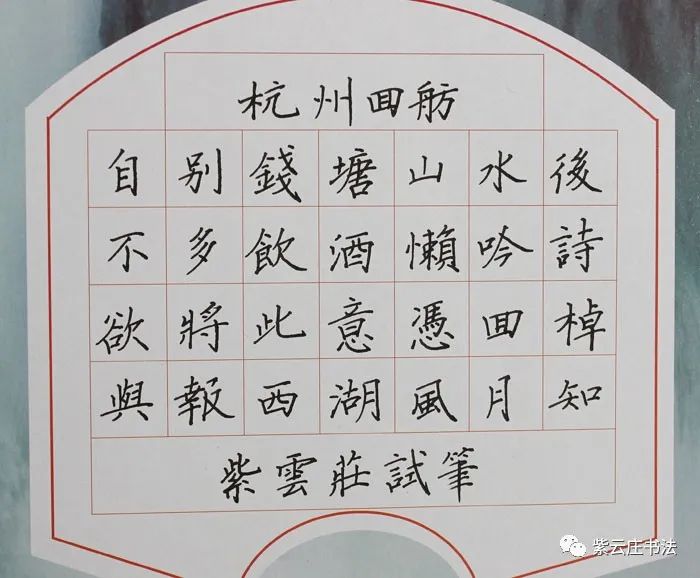 杭州回舫
自別錢塘山水後
不多飲酒懶吟詩
欲將此意憑回棹
與報西湖風月知
紫雲莊試筆
紫云庄书法